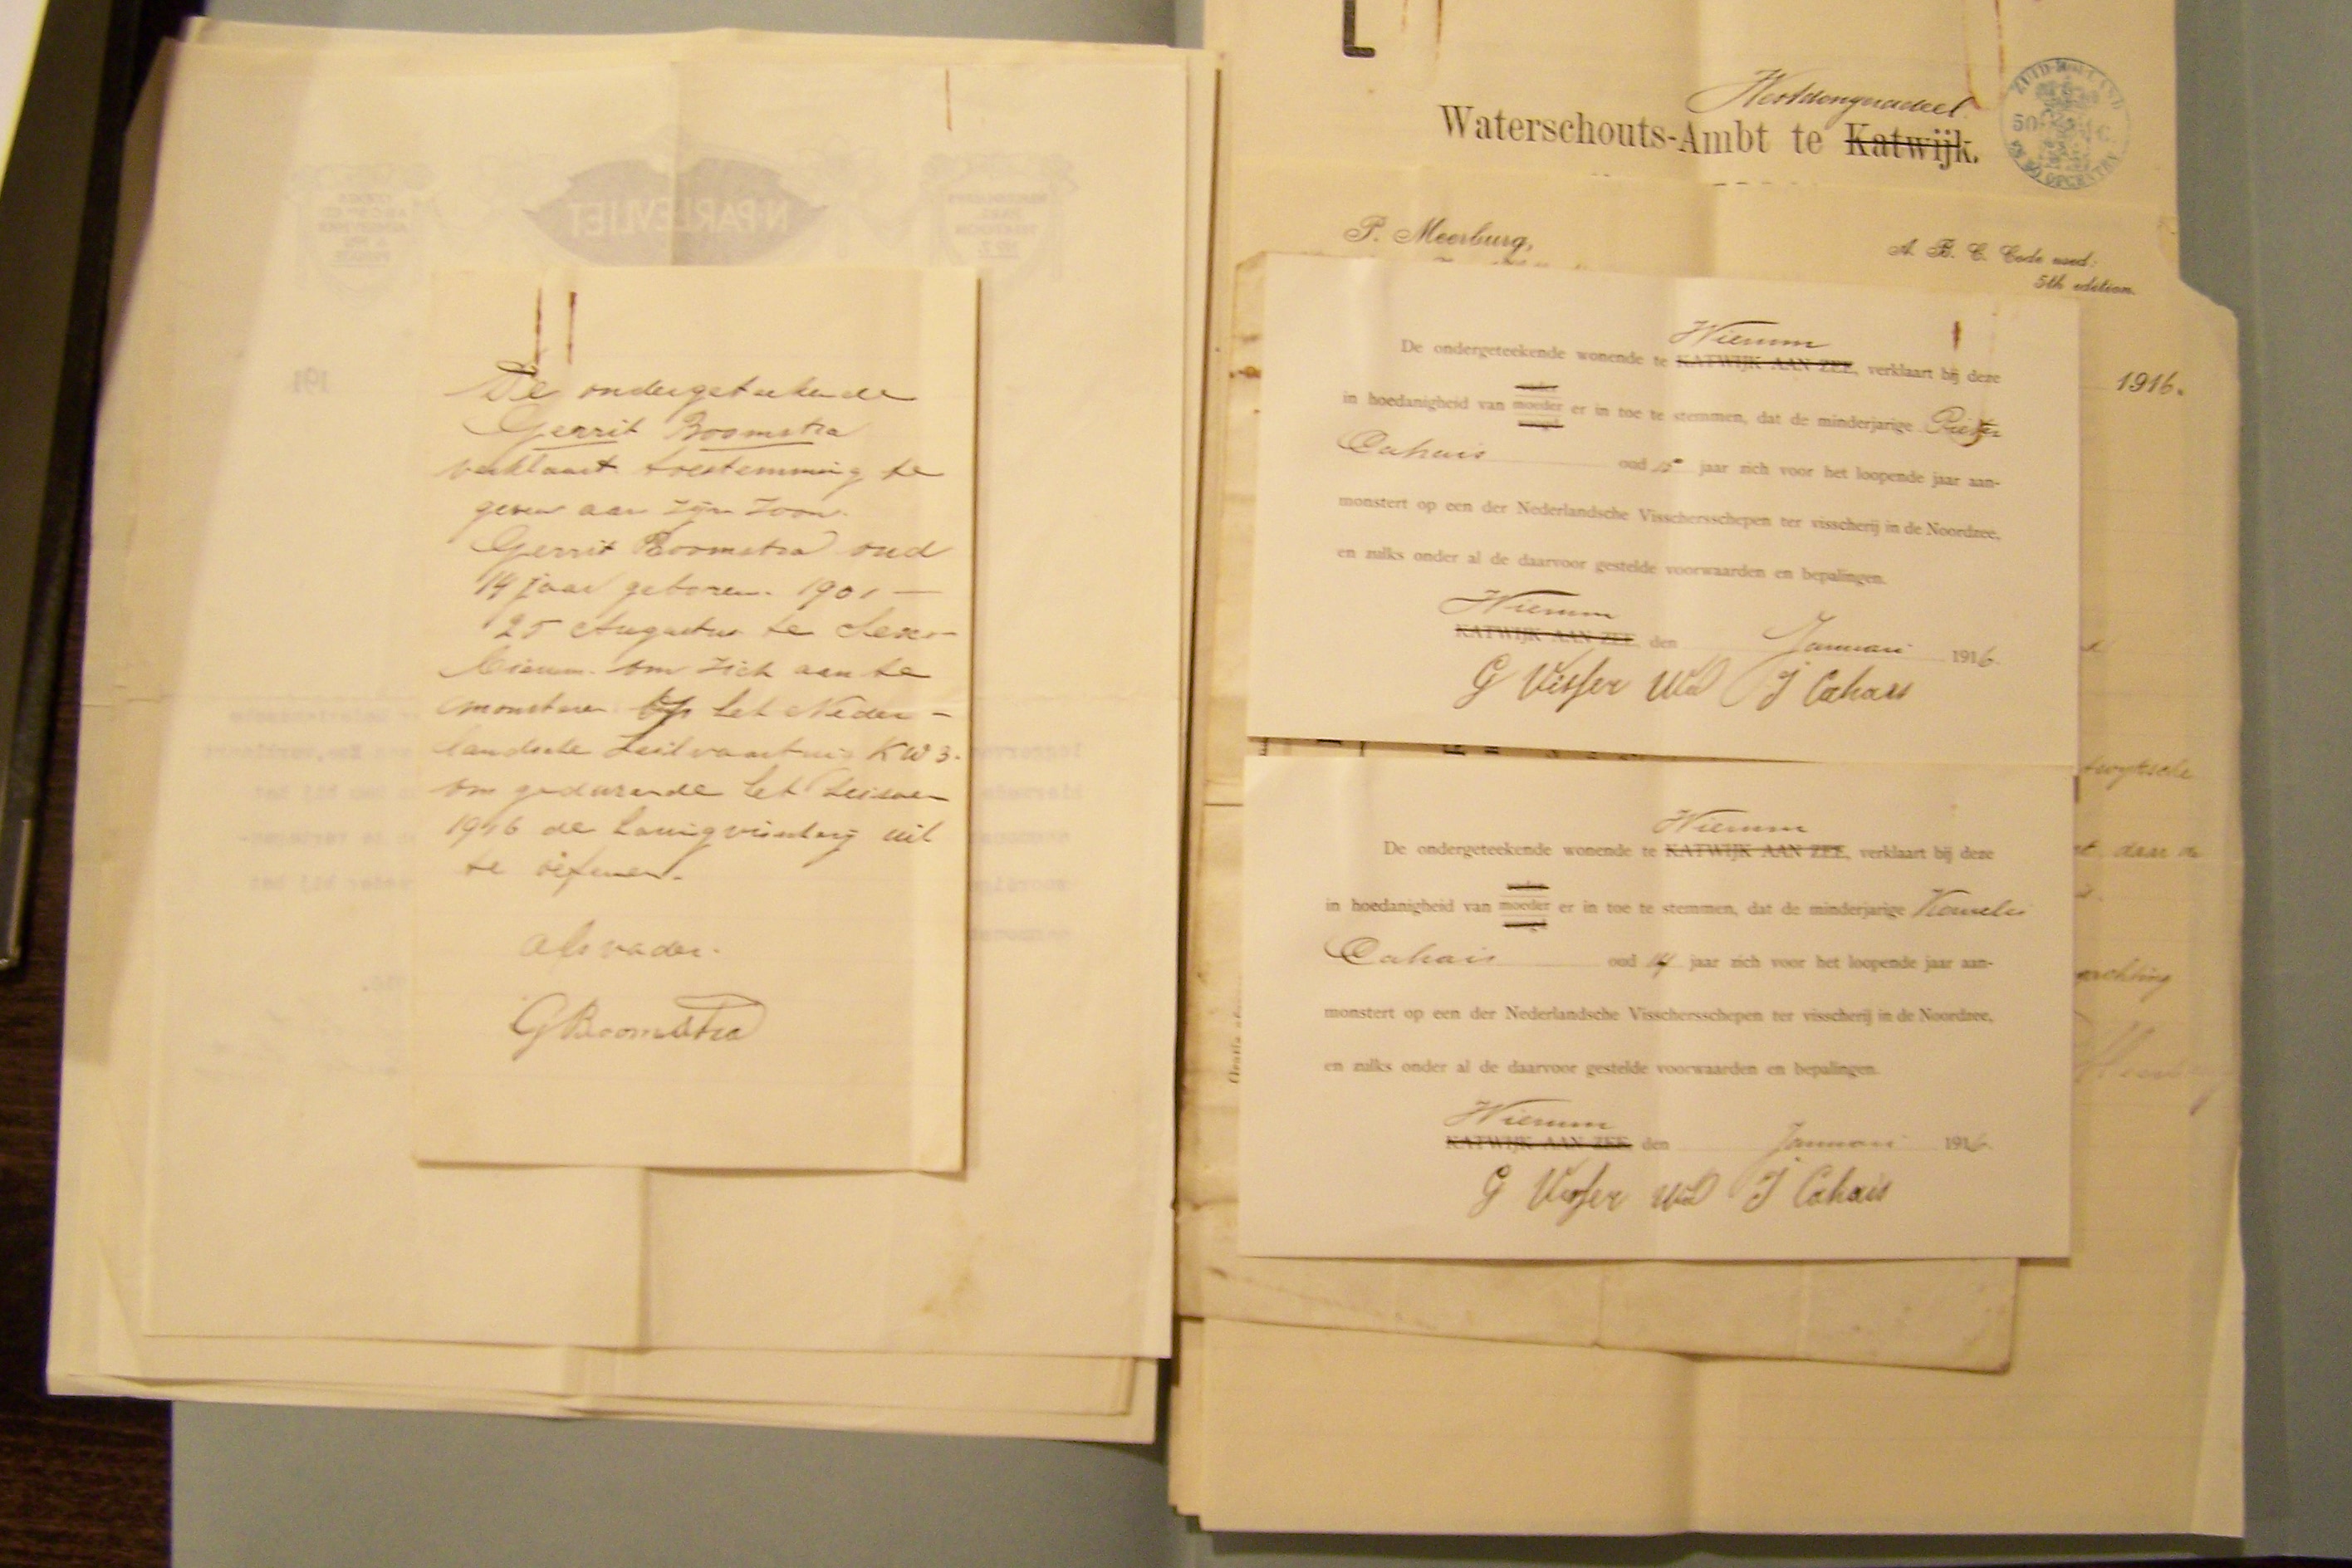 De ondergetekende
Gerrit Boomstra
verklaart toestemming te
geven aan zijn zoon.
Gerrit Boomstra oud
14 jaar geboren. 1901 —
25 Augustus te
om zich aan te
monsteren op het Neder-
landsche Zeilvaartuig KW 3.
om gedurende het Seizoen
1916 de haringvisscherij uit
te oefenen.
als vader.
G Boomstra
N. PARLEVLIET
191
Westdongeradeel
Waterschouts-Ambt te Katwijk.
ZUID-HOLLAND
50 C.
P. Meerburg,
A. B. C. Code used:
5th edition.
1916.
Wierum
De ondergeteekende wonende te KATWIJK AAN ZEE, verklaart bij deze
in hoedanigheid van vader moeder voogd er in toe te stemmen, dat de minderjarige Pieter
Cahais oud 15 jaar zich voor het loopende jaar aan-
monstert op een der Nederlandsche Visschersschepen ter visscherij in de Noordzee,
en zulks onder al de daarvoor gestelde voorwaarden en bepalingen.
Wierum
KATWIJK AAN ZEE, den Januari 1916
G Visser Wed J Cahais
Wierum
De ondergeteekende wonende te KATWIJK AAN ZEE, verklaart bij deze
in hoedanigheid van vader moeder voogd er in toe te stemmen, dat de minderjarige Kornelis
Cahais oud 14 jaar zich voor het loopende jaar aan-
monstert op een der Nederlandsche Visschersschepen ter visscherij in de Noordzee,
en zulks onder al de daarvoor gestelde voorwaarden en bepalingen.
Wierum
KATWIJK AAN ZEE, den Januari 1916
G Visser Wed J Cahais
daar de